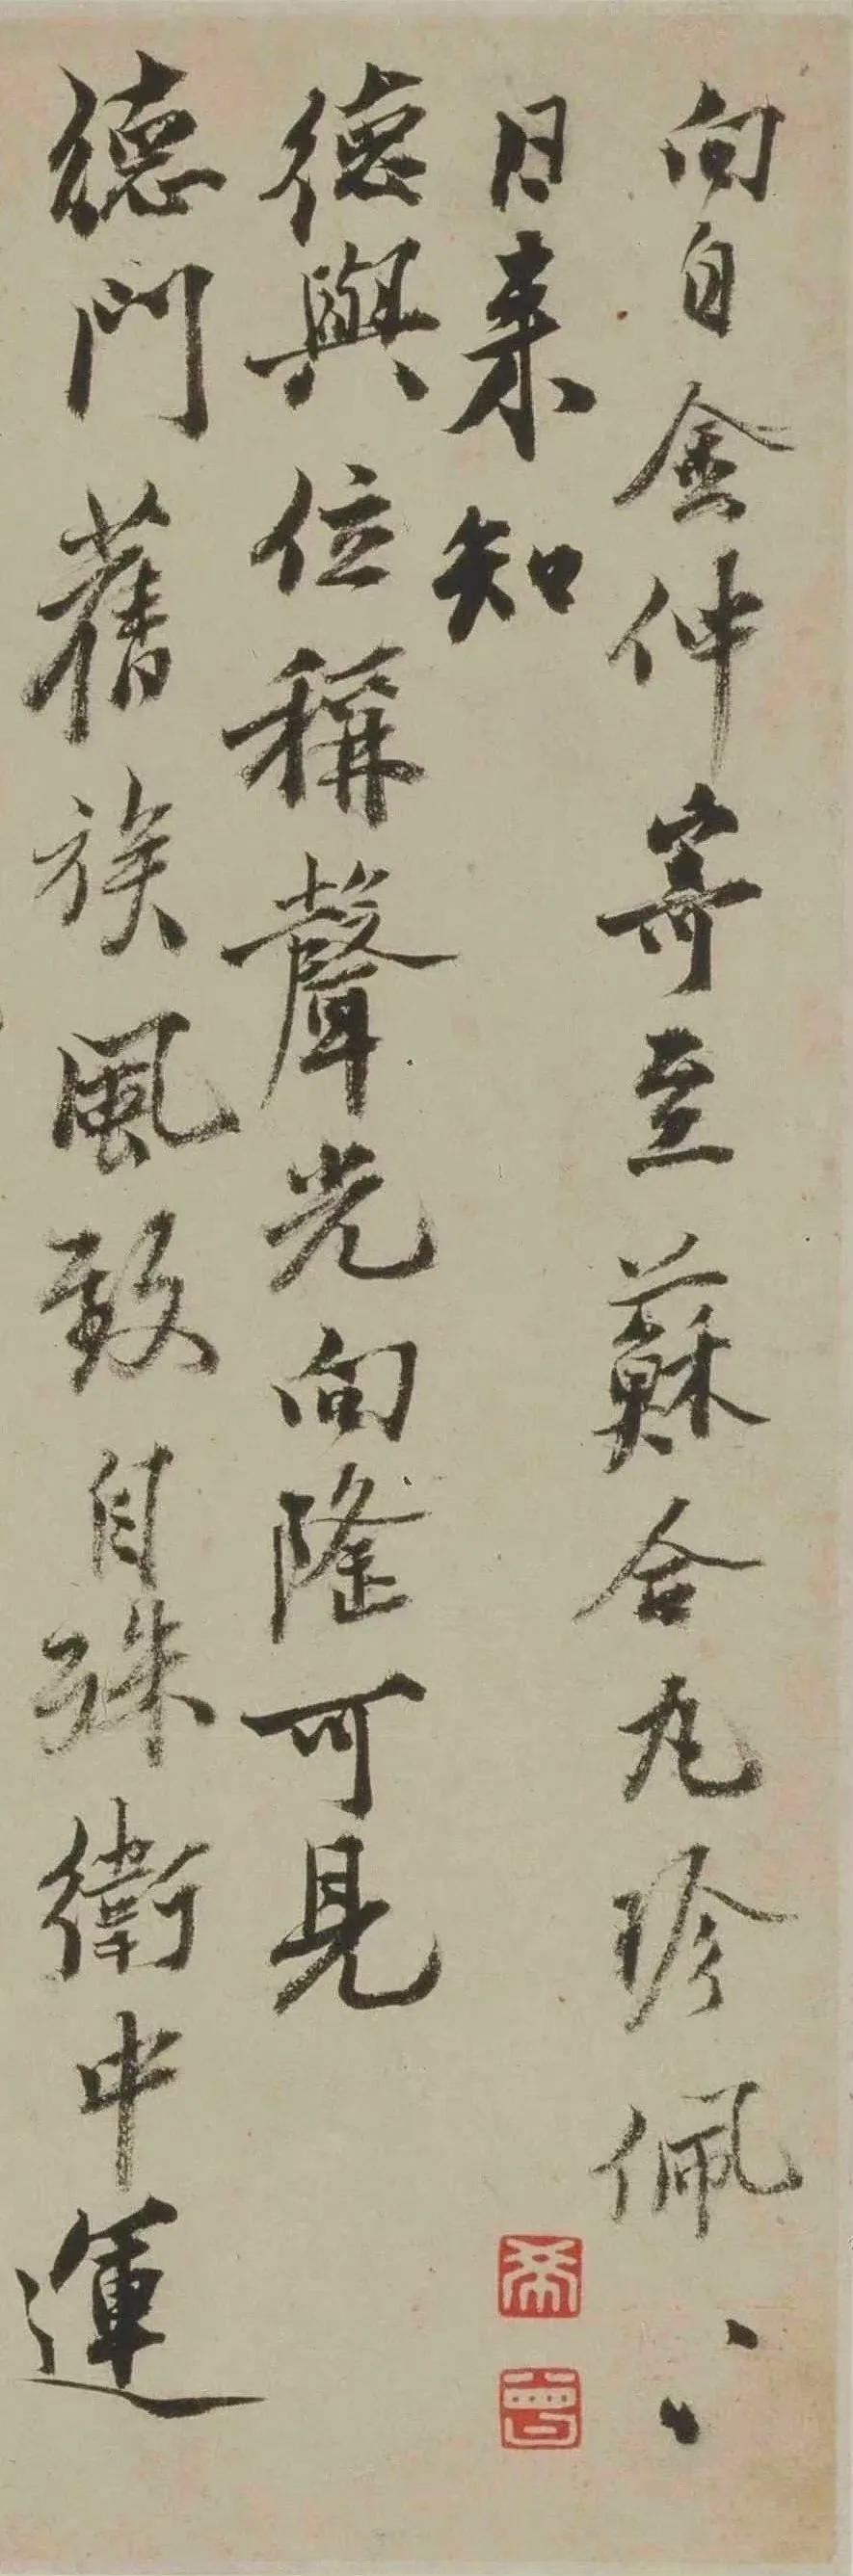 向自金仲寄至蘇合丸珍佩〻
日来知
德與位稱聲光向隆可見
德門舊族風致自殊衛中運
希
曾